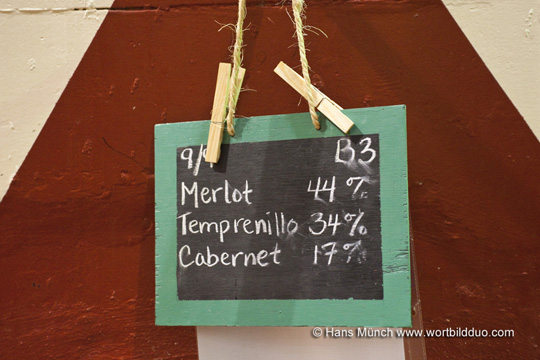 B3
Merlot 44%
Temprenillo 34%
Cabernet 17%
© Hans Münch www.wortbildduo.com